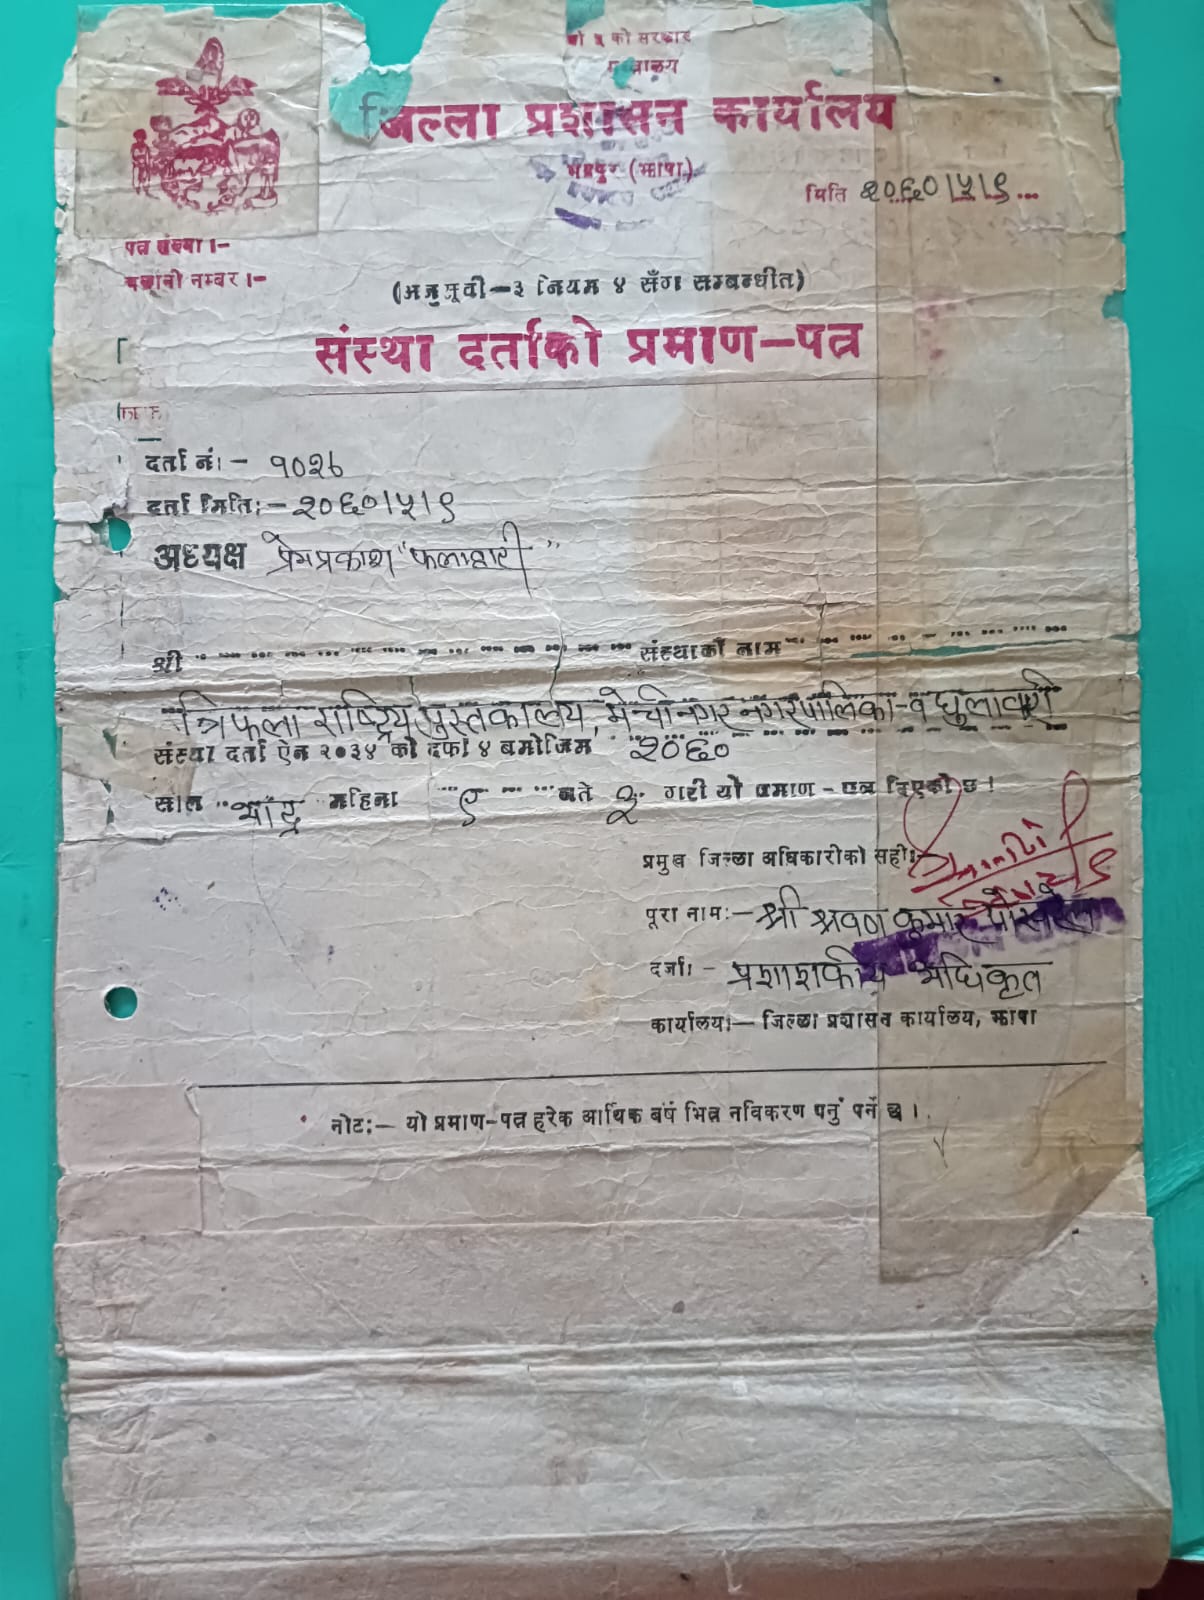 को सरकार
जिल्ला प्रशासन कार्यालय
भद्रपुर (झापा)
मिति २०६०।५।९
पत्र संख्या ।-
चलानी नम्बर ।-
(अनुसूची-३ नियम ४ सँग सम्बन्धीत)
संस्था दर्ताको प्रमाण-पत्र
दर्ता नं। -
दर्ता मिति:- २०६०।५।९
अध्यक्ष प्रेमप्रकाश "फलाहारी"
श्री ... संस्थाको नाम ...
त्रिफला राष्ट्रिय पुस्तकालय, मेचीनगर नगरपालिका-
संस्था दर्ता ऐन २०३४ को दफा ४ बमोजिम २०६०
साल भाद्र महिना ९ गते गरी यो प्रमाण-पत्र दिएको छ।
प्रमुख जिल्ला अधिकारीको सही:-
पूरा नाम:- श्री श्रवण कुमार पोखरेल
दर्जा। - प्रशाशकीय अधिकृत
कार्यालय।- जिल्ला प्रशासन कार्यालय, झापा
नोट:- यो प्रमाण-पत्र हरेक आर्थिक बर्ष भित्र नविकरण गर्नु पर्ने छ।